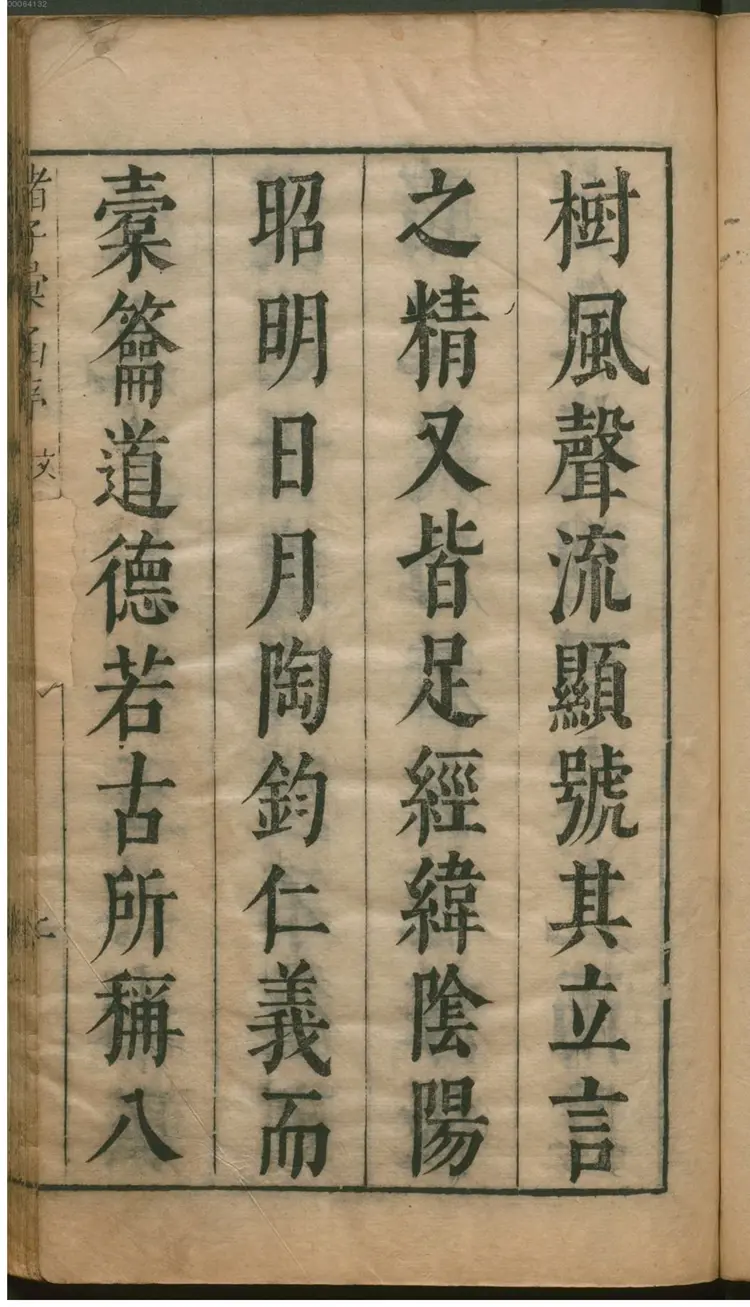 樹風聲流顯號其立言
之精又皆足經緯陰陽
昭明日月陶鈞仁義而
橐籥道德若古所稱八
00064132